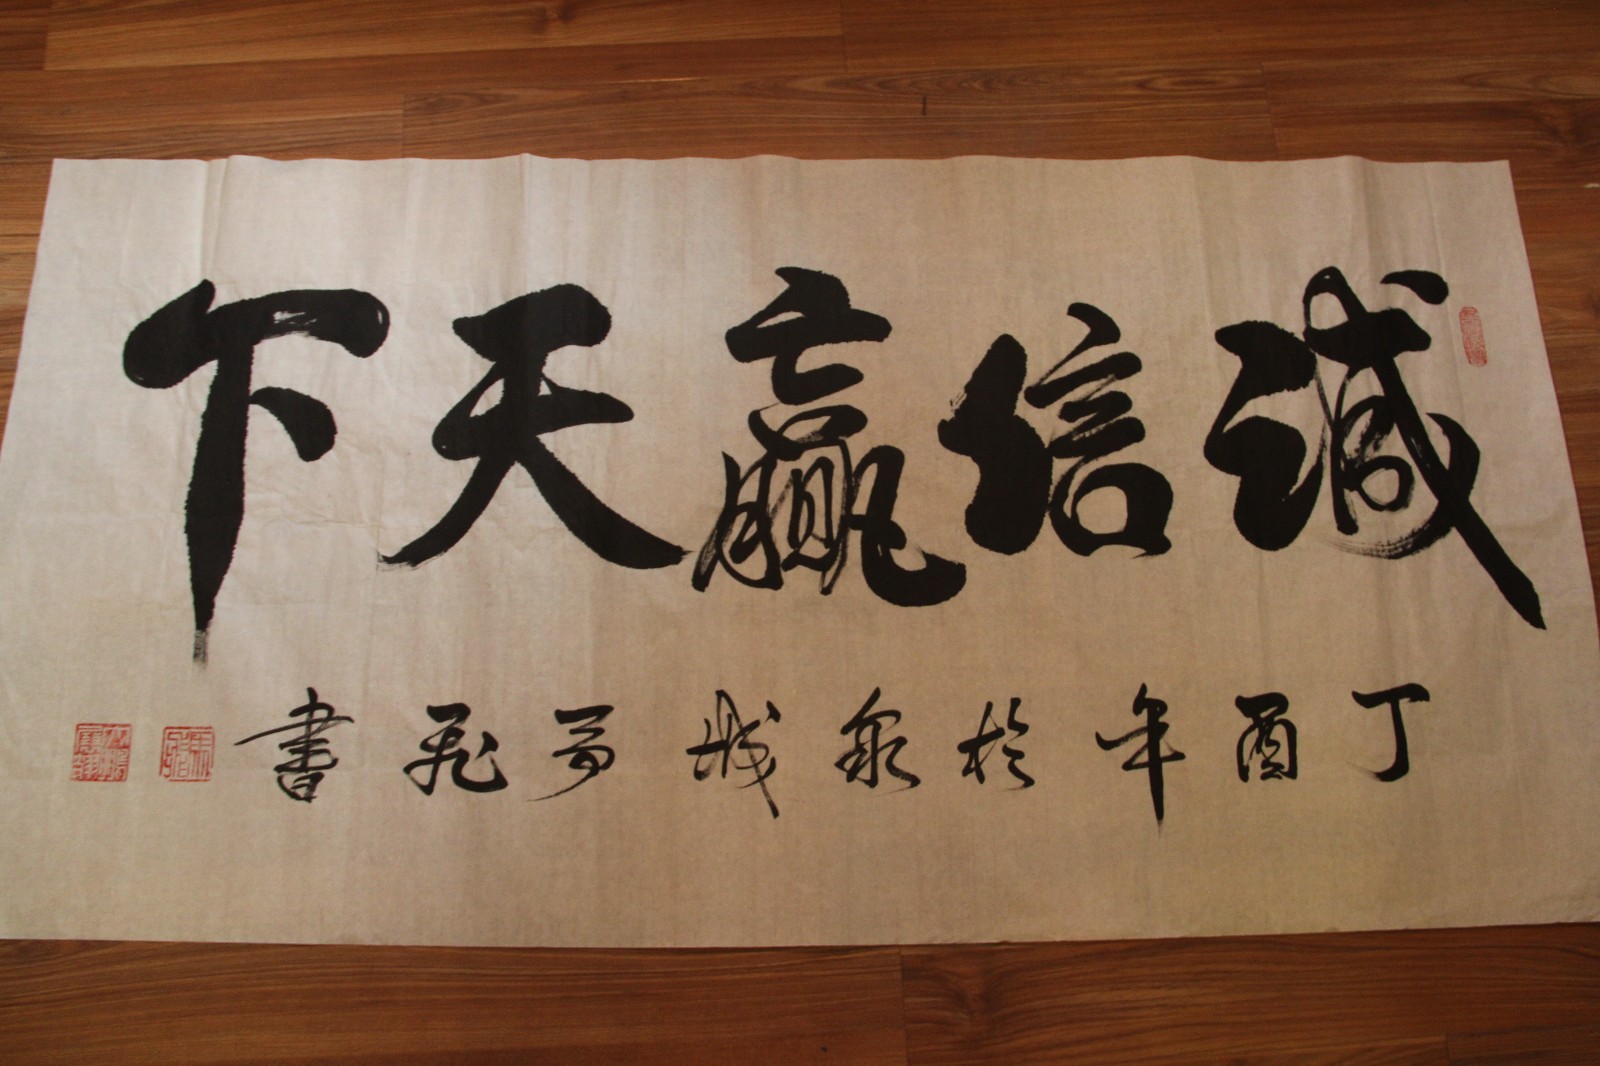 誠信贏天下
丁酉年於泉城 飛書